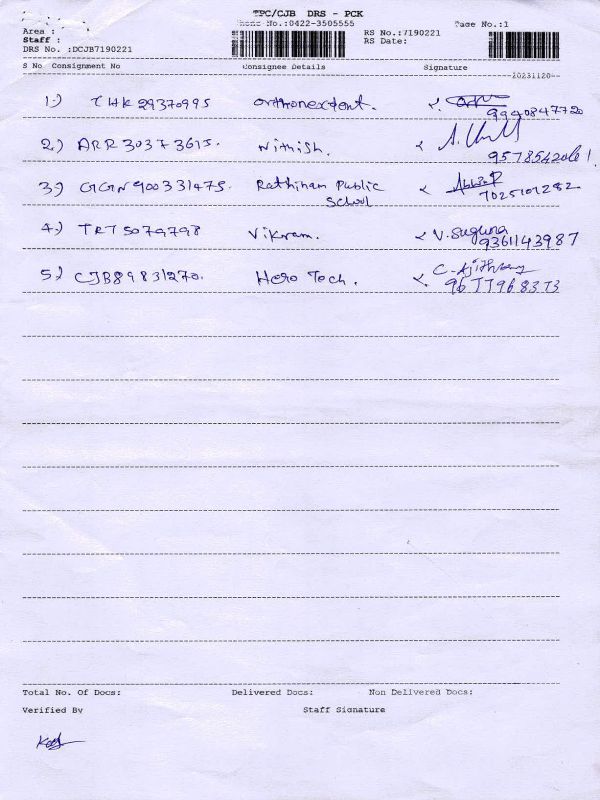 TPC/CJB DRS - PCK
Phone No.:0422-3505555
Page No.:1
Area :
Staff :
DRS No. :DCJB7190221
RS No.:7190221
RS Date:
S No Consignment No Consignee Details Signature
20231120
1) CHK 29370995 Orthonextent.
9940847720
2) ARR 30373615. Nithish.
3) GGN 900331475. Rathinam Public School
7025101282
4) TRT 5079798 Vikram. V. Suguna
9361143987
5) CJB89831270. Hero Tech.
Total No. Of Docs: Delivered Docs: Non Delivered Docs:
Verified By Staff Signature